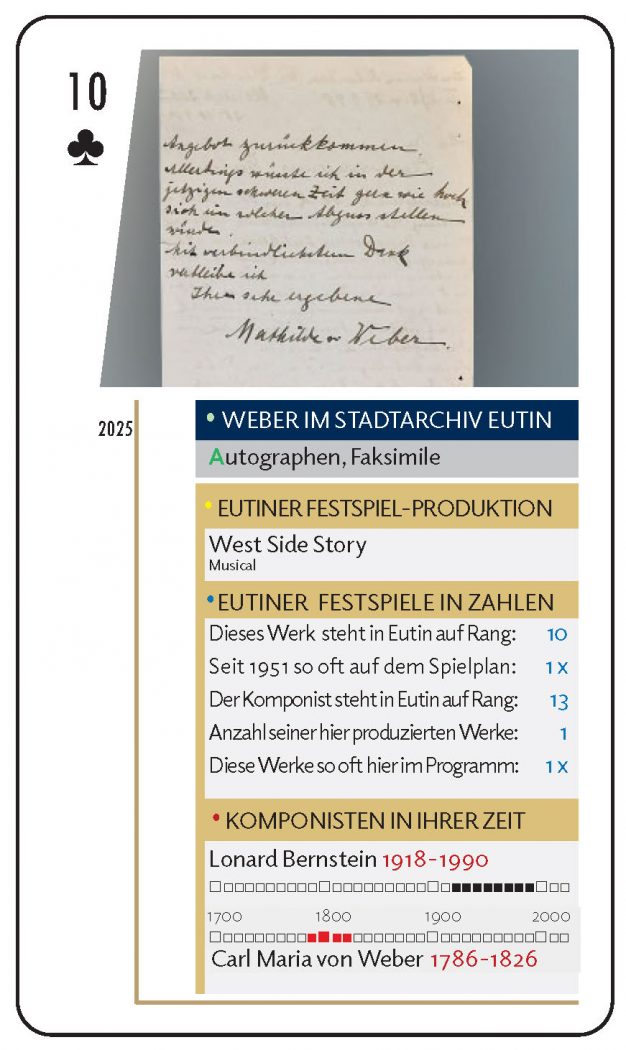 10
Angebot zurückkommen.
Allerdings wüsste ich in der
jetzigen schweren Zeit gern wie hoch
sich ein solcher Abguss stellen
würde.
Mit verbindlichstem Dank
verbleibe ich
Ihre sehr ergebene
Mathilde v Weber.
2025
• WEBER IM STADTARCHIV EUTIN
Autographen, Faksimile
• EUTINER FESTSPIEL-PRODUKTION
West Side Story
Musical
• EUTINER FESTSPIELE IN ZAHLEN
Dieses Werk steht in Eutin auf Rang: 10
Seit 1951 so oft auf dem Spielplan: 1 x
Der Komponist steht in Eutin auf Rang: 13
Anzahl seiner hier produzierten Werke: 1
Diese Werke so oft hier im Programm: 1 x
• KOMPONISTEN IN IHRER ZEIT
Lonard Bernstein 1918-1990
1700 1800 1900 2000
Carl Maria von Weber 1786-1826